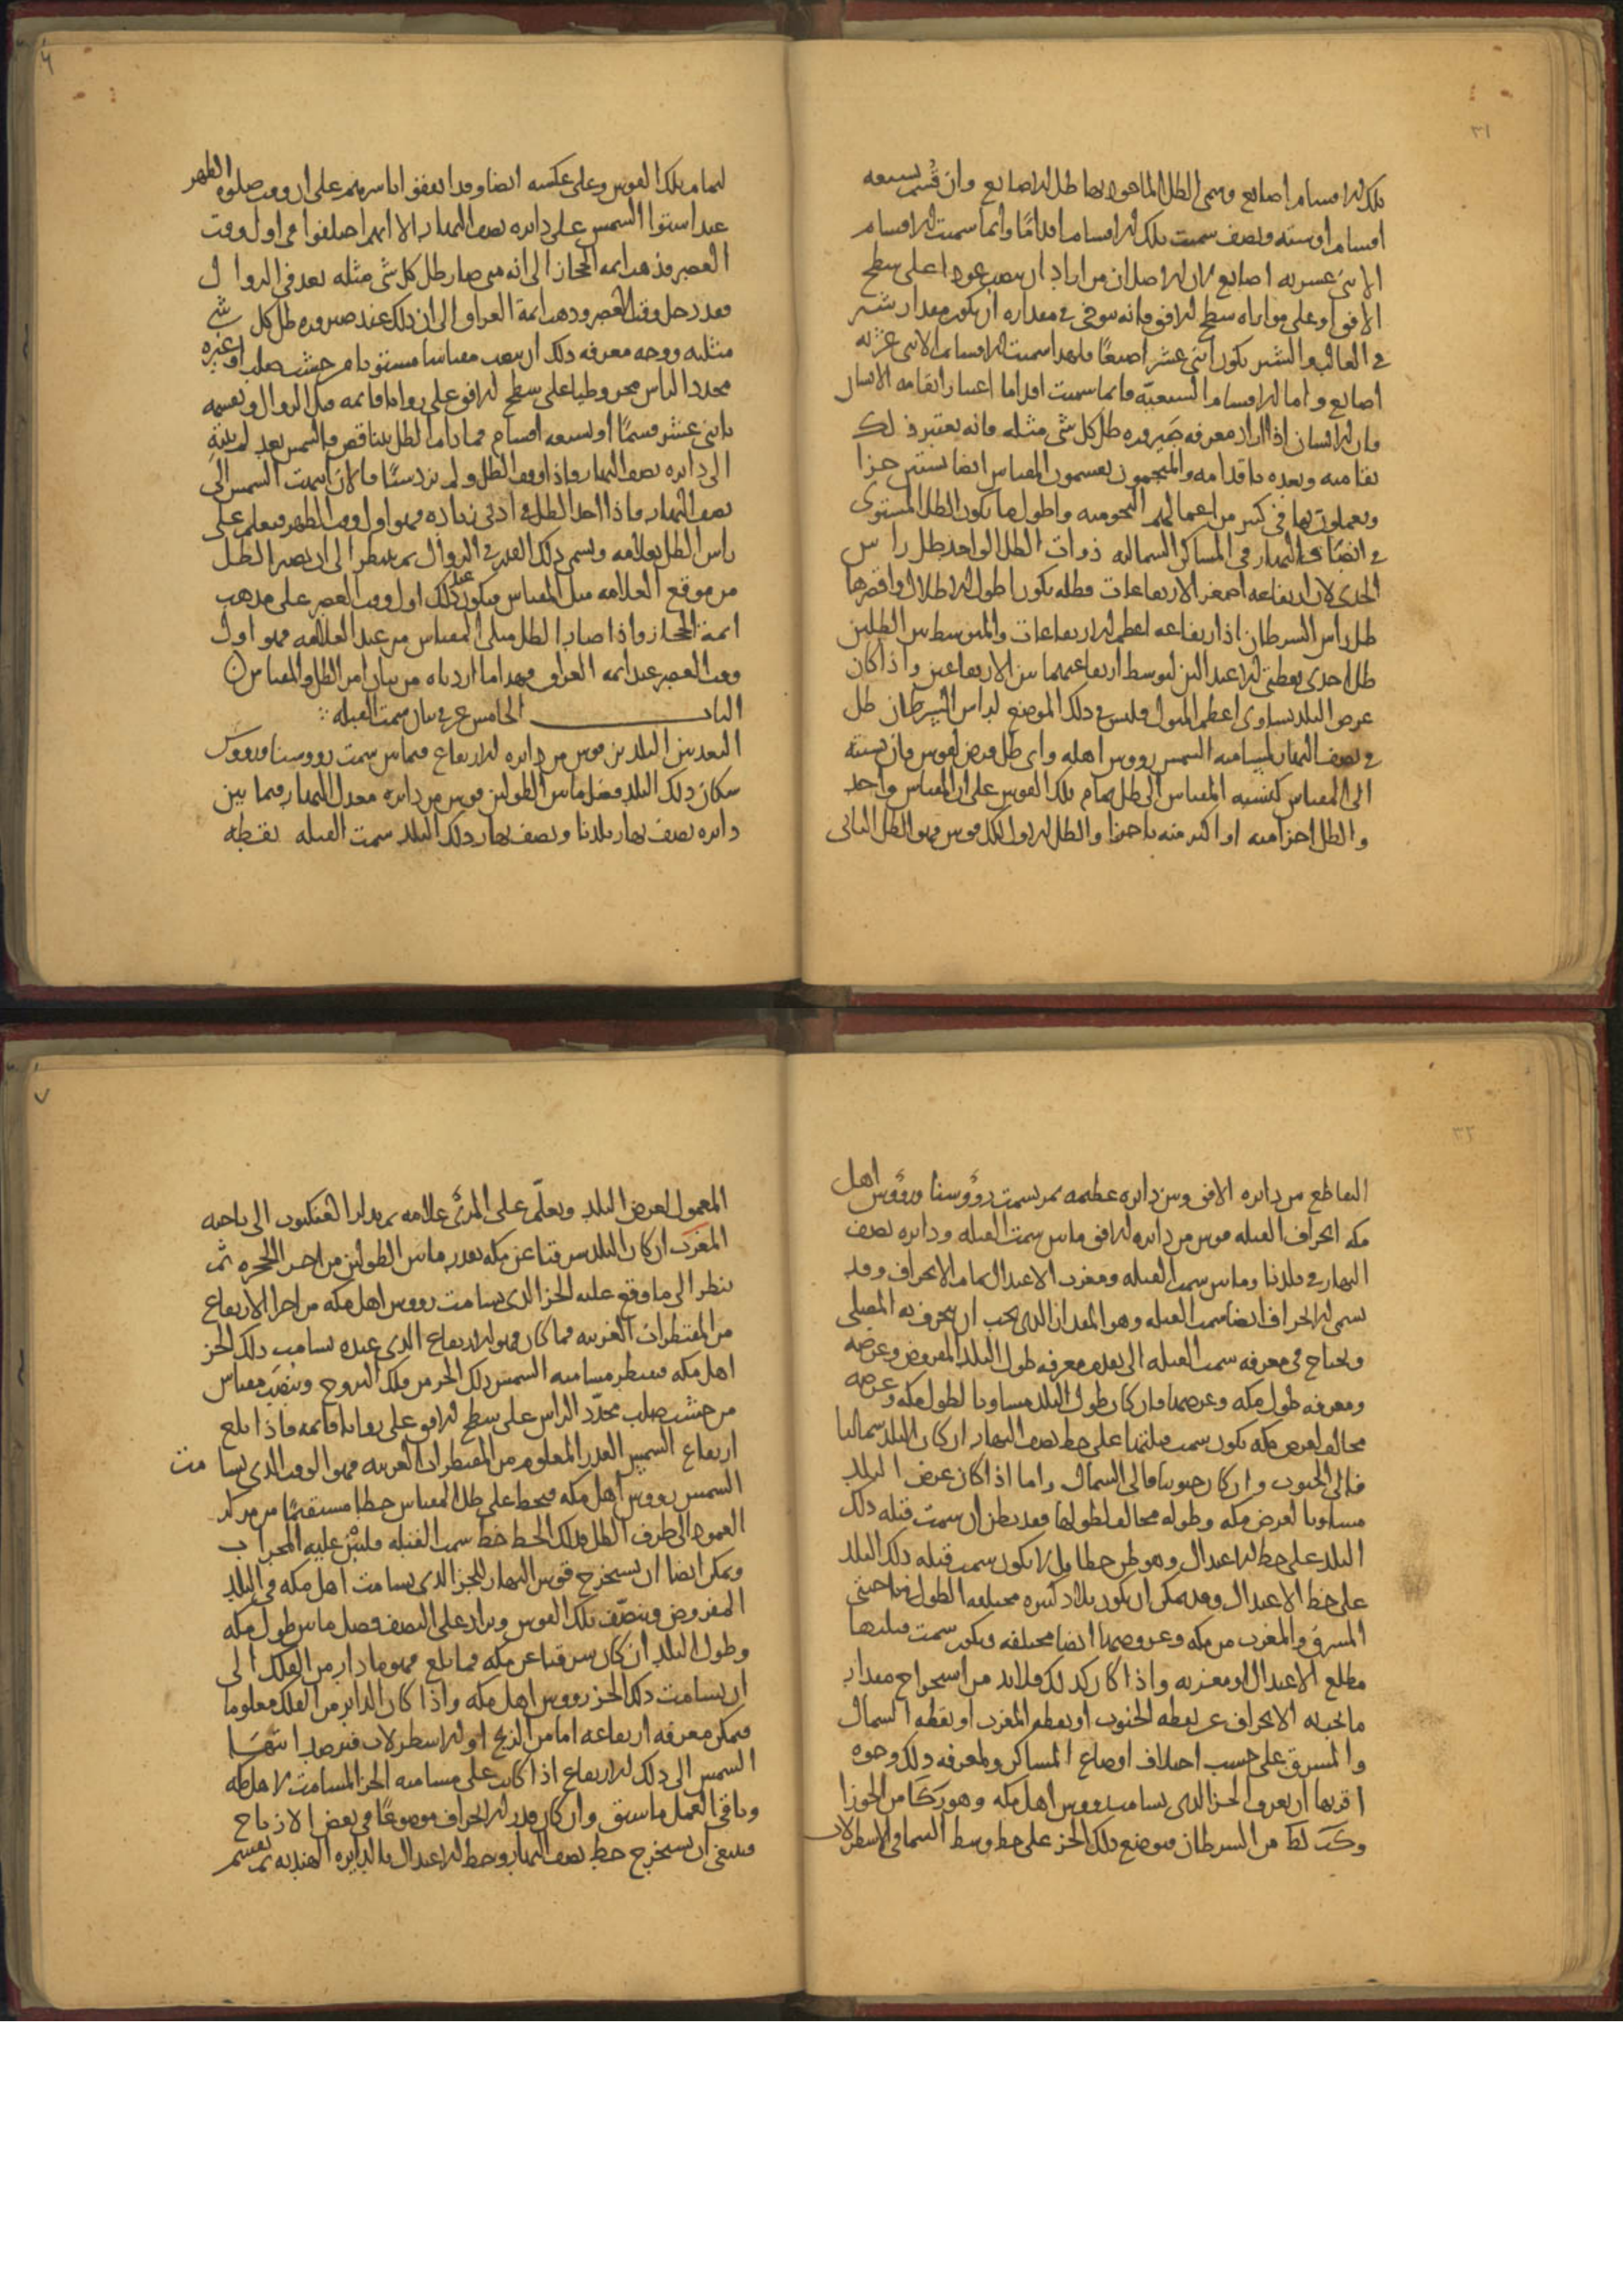 ٣١
تلك الاقسام اصابع وسمى الظل الماخوذ بها ظل الاصابع وان قُسم بسبعه
اقسام او سته ونصف سميت تلك الاقسام اقدامًا وانما سميت الاقسام
الاثنى عشريه اصابع لان الاصل ان من اراد ان ينصب عمودا على سطح
الافق او على موازاه سطح الافق فانه يتوخى فى مقداره ان يكون مقدار شبر
فى الغالب والشبر يكون اثنى عشر اصبعًا فلهذا سميت الاقسام الاثنى عشريه
اصابع واما الاقسام السبعيّه فانما سميت اقداما اعتبارا بقامه الانسان
فان الانسان اذا اراد معرفه صَيروره ظل كل شى مثله فانه يعتبر ذلك
بقامته وبعده باقدامه والمنجمون يقسمون المقياس ايضا بستين جزا
ويعملون بها فى كثير من اعمالهم النجوميه واطول ما يكون الظل المستوى
فى انصاف النهار فى المساكن الشماليه ذوات الظل الواحد ظل راس
الجدى لان ارتفاعه اصغر الارتفاعات فظله يكون اطول الاظلال واقصرها
ظل راس السرطان اذ ارتفاعه اعظم الارتفاعات والمتوسط بين الظلين
ظل احدى نقطتى الاعتدالين لتوسط ارتفاعيهما بين الارتفاعين واذا كان
عرض البلد يساوى اعظم الميول فليس فى ذلك الموضع لراس السرطان ظل
فى نصف النهار لمسامته الشمس رووس اهله واى ظل فرض لقوس فان نسبته
الى المقياس كنسبه المقياس الى ظل تمام تلك القوس على ان المقياس واحد
والظل اجزا منه او اكثر منه باجزا والظل الاول لكل قوس فهو الظل الثانى
٦
لتمام تلك القوس وعلى عكسه ايضا وقد اتفقوا باسرهم على ان وقت صلوه الظهر
عند استوا الشمس على دايره نصف النهار الا انهم اختلفوا فى اول وقت
العصر فذهب ايمه الحجاز الى انه متى صار ظل كل شى مثله بعد فى الزوال
فقد دخل وقت العصر وذهب ايمة العراق الى ان ذلك عند صيروره ظل كل شى
مثليه ووجه معرفه ذلك ان ينصب مقياسا مستويا من خشب صلب او غيره
محدد الراس مخروطيا على سطح الافق على زوايا قايمه قبل الزوال ونقسمه
باثنى عشر قسمًا او بسبعه اقسام فما دام الظل يتناقص فالشمس بعد لم ينته
الى دايره نصف النهار واذا وقف الظل ولم يزد شيئًا فالان انتهت الشمس الى
نصف النهار فاذا اخذ الظل فى ادنى زياده فهو اول وقت الظهر فيعلم على
راس الظل بعلامه ويسمى ذلك القدر فى الزوال ثم ينظر الى ان يصير الظل
من موقع العلامه مثل المقياس فيكون عند ذلك اول وقت العصر على مذهب
ايمة الحجاز واذا صار الظل مثلى المقياس من عند العلامه فهو اول
وقت العصر عند ايمه العراق فهذا ما اردناه من بيان امر الظل والمقياس ن
الباب الخامس عشر فى بيان سمت القبله
البعد بين البلدين قوس من دايره الارتفاع فيما بين سمت رووسنا ورووس
سكان ذلك البلد فضل ما بين الطولين قوس من دايره معدل النهار فيما بين
دايره نصف نهار بلدنا ونصف نهار ذلك البلد سمت القبله نقطه
٣٢
التقاطع من دايره الافق وبين دايره عظيمه تمر بسمت رؤوسنا ورؤس اهل
مكه انحراف القبله قوس من دايره الافق ما بين سمت القبله ودايره نصف
النهار فى بلدنا وما بين سمت القبله ومغرب الاعتدال تمام الانحراف وقد
يسمى الانحراف ايضا سمت القبله وهو المقدار الذى يجب ان ينحرف به المصلى
ويحتاج فى معرفه سمت القبله الى تقديم معرفه طول البلد المفروض وعرضه
ومعرفه طول مكه وعرضها فان كان طول البلد مساويا لطول مكه وعرضه
مخالف لعرض مكه يكون سمت قبلتها على خط نصف النهار ان كان البلد شماليا
فالى الجنوب وان كان جنوبيا فالى الشمال واما اذا كان عرض البلد
مساويا لعرض مكه وطوله مخالف لطولها فقد يظن ان سمت قبله ذلك
البلد على خط الاعتدال وهو ظن خطا بل لا يكون سمت قبله ذلك البلد
على خط الاعتدال وقد يمكن ان يكون بلاد كثيره مختلفه الطول فى ناحيتى
المشرق والمغرب من مكه وعروضها ايضا مختلفه ويكون سمت قبلتها
مطلع الاعتدال او مغربه واذا كان كذلك فلا بد من استخراج مقدار
ما يجب به الانحراف عن نقطه الجنوب او نقطه المغرب او نقطه الشمال
والمشرق على حسب اختلاف اوضاع المساكن ولمعرفه ذلك وجوه
اقربها ان يعرف الجز الذى يسامت رووس اهل مكه وهو زكا من الجوزا
وكب لط من السرطان فيوضع ذلك الجز على خط وسط السما فى الاسطرلاب
٧
المعمول لعرض البلد ويعلّم على المرئ علامه ثم يدار العنكبوت الى ناحيه
المغرب ان كان البلد شرقيا عن مكه بقدر ما بين الطولين من اجزا الحجره ثم
ينظر الى ما وقع عليه الجز الذى يسامت رووس اهل مكه من اجزا الارتفاع
من المقنطرات الغربيه فما كان فهو الارتفاع الذى عنده يسامت ذلك الجز
اهل مكه فينتظر مسامته الشمس ذلك الجز من فلك البروج وينصب مقياس
من خشب صلب محدّد الراس على سطح الافق على زوايا قايمه فاذا بلغ
ارتفاع الشمس القدر المعلوم من المقنطرات الغربيه فهو الوقت الذى يسامت
الشمس رووس اهل مكه فيخط على ظل المقياس خطا مستقيمًا من مركز
العمود الى طرف الظل فذلك الخط خط سمت القبله فليبن عليه المحراب
ويمكن ايضا ان يستخرج قوس النهار للجز الذى يسامت اهل مكه فى البلد
المفروض وينصّف تلك القوس ويزاد على النصف فضل ما بين طول مكه
وطول البلد ان كان شرقيا عن مكه فما بلغ فهو ما دار من الفلك الى
ان يسامت ذلك الجز رووس اهل مكه واذا كان الداير من الفلك معلوما
فيمكن معرفه ارتفاعه اما من الزيج او الاسطرلاب فيرصد انتها
الشمس الى ذلك الارتفاع اذا كانت على مسامته الجز المسامت لاهل مكه
وباقى العمل ما سبق وان كان قدر الانحراف موضوعًا فى بعض الازياج
فينبغى ان يستخرج خط نصف النهار وخط الاعتدال بالدايره الهنديه ثم يقسم